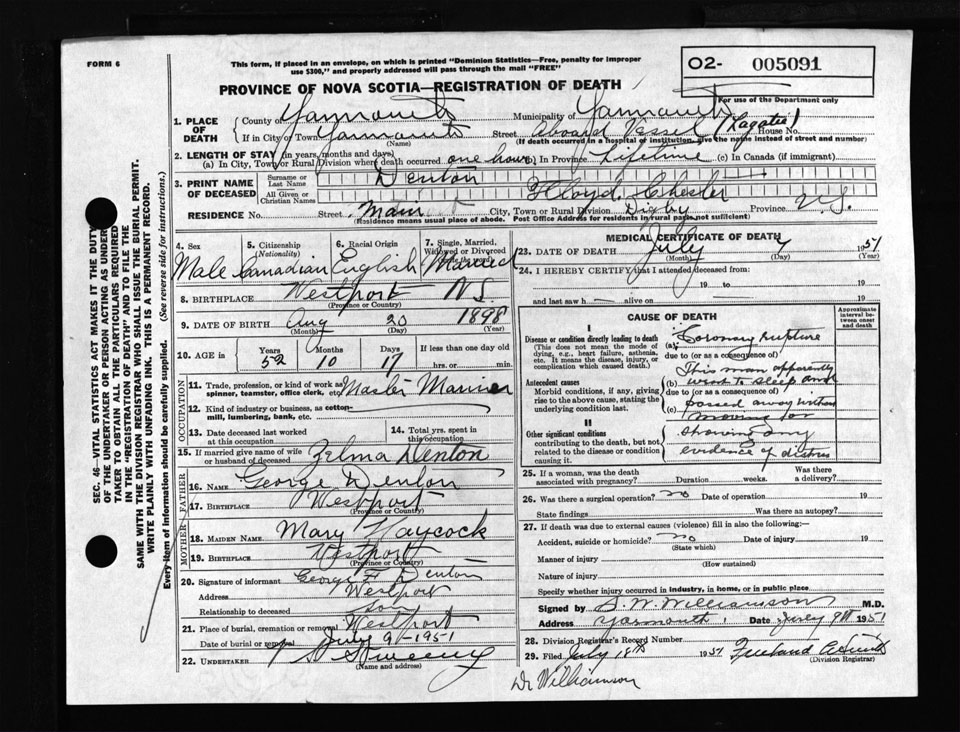 FORM 6
This form, if placed in an envelope, on which is printed "Dominion Statistics—Free, penalty for improper
use $300," and properly addressed will pass through the mail "FREE"
O2- 005091
PROVINCE OF NOVA SCOTIA—REGISTRATION OF DEATH
For use of the Department only
1. PLACE OF DEATH
County of Yarmouth Municipality of Yarmouth
If in City or Town Yarmouth Street Aboard Vessel House No.
(Name) (If death occurred in a hospital or institution, give the name instead of street and number)
2. LENGTH OF STAY (in years, months and days)
(a) In City, Town or Rural Division where death occurred one hour (b) In Province Lifetime (c) In Canada (if immigrant)
3. PRINT NAME OF DECEASED
Surname or Last Name Denton
All Given or Christian Names Floyd Chester
RESIDENCE No. Street Main City, Town or Rural Division Digby Province N.S.
(Residence means usual place of abode. Post Office Address for residents in rural parts not sufficient)
4. Sex 5. Citizenship (Nationality) 6. Racial Origin 7. Single, Married, Widowed or Divorced (write the word)
Male Canadian English Married
8. BIRTHPLACE Westport N.S.
(Province or Country)
9. DATE OF BIRTH Aug 20 1898
(Month) (Day) (Year)
10. AGE in Years Months Days If less than one day old
52 10 17 hrs. or min.
OCCUPATION
11. Trade, profession, or kind of work as spinner, teamster, office clerk, etc. Master Mariner
12. Kind of industry or business, as cotton-mill, lumbering, bank, etc.
13. Date deceased last worked at this occupation
14. Total yrs. spent in this occupation
15. If married give name of wife or husband of deceased Zelma Denton
FATHER
16. NAME George Denton
17. BIRTHPLACE Westport
(Province or Country)
MOTHER
18. MAIDEN NAME Mary Haycock
19. BIRTHPLACE Westport
(Province or Country)
20. Signature of informant George F. Denton
Address Westport
Relationship to deceased son
21. Place of burial, cremation or removal Westport
Date of burial or removal July 9 - 1951
22. UNDERTAKER Sweeny
(Name and address)
MEDICAL CERTIFICATE OF DEATH
23. DATE OF DEATH July 7 1951
(Month) (Day) (Year)
24. I HEREBY CERTIFY that I attended deceased from:
19 to 19
and last saw h alive on 19
CAUSE OF DEATH
Approximate interval between onset and death
I
Disease or condition directly leading to death
(This does not mean the mode of dying, e.g., heart failure, asthenia, etc. It means the disease, injury, or complication which caused death.)
(a) Coronary rupture
due to (or as a consequence of)
This man apparently
Antecedent causes
Morbid conditions, if any, giving rise to the above cause, stating the underlying condition last.
(b) went to sleep and
due to (or as a consequence of)
(c) passed away without
moving or
II
Other significant conditions
contributing to the death, but not related to the disease or condition causing it.
showing any
evidence of distress
25. If a woman, was the death associated with pregnancy? Duration weeks. Was there a delivery?
26. Was there a surgical operation? no Date of operation 19
State findings Was there an autopsy?
27. If death was due to external causes (violence) fill in also the following:—
Accident, suicide or homicide? no Date of injury 19
(State which)
Manner of injury
(How sustained)
Nature of injury
Specify whether injury occurred in industry, in home, or in public place
Signed by S. W. Williamson M.D.
Address Yarmouth Date July 9th 1951
28. Division Registrar's Record Number
29. Filed July 18th 1951 Freeland
(Division Registrar)
Dr Williamson
SEC. 46—VITAL STATISTICS ACT MAKES IT THE DUTY
OF THE UNDERTAKER OR PERSON ACTING AS UNDER-
TAKER TO OBTAIN ALL THE PARTICULARS REQUIRED
IN THE "REGISTRATION OF DEATH" AND TO FILE THE
SAME WITH THE DIVISION REGISTRAR WHO SHALL ISSUE THE BURIAL PERMIT.
WRITE PLAINLY WITH UNFADING INK. THIS IS A PERMANENT RECORD.
Every item of information should be carefully supplied. (See reverse side for instructions.)